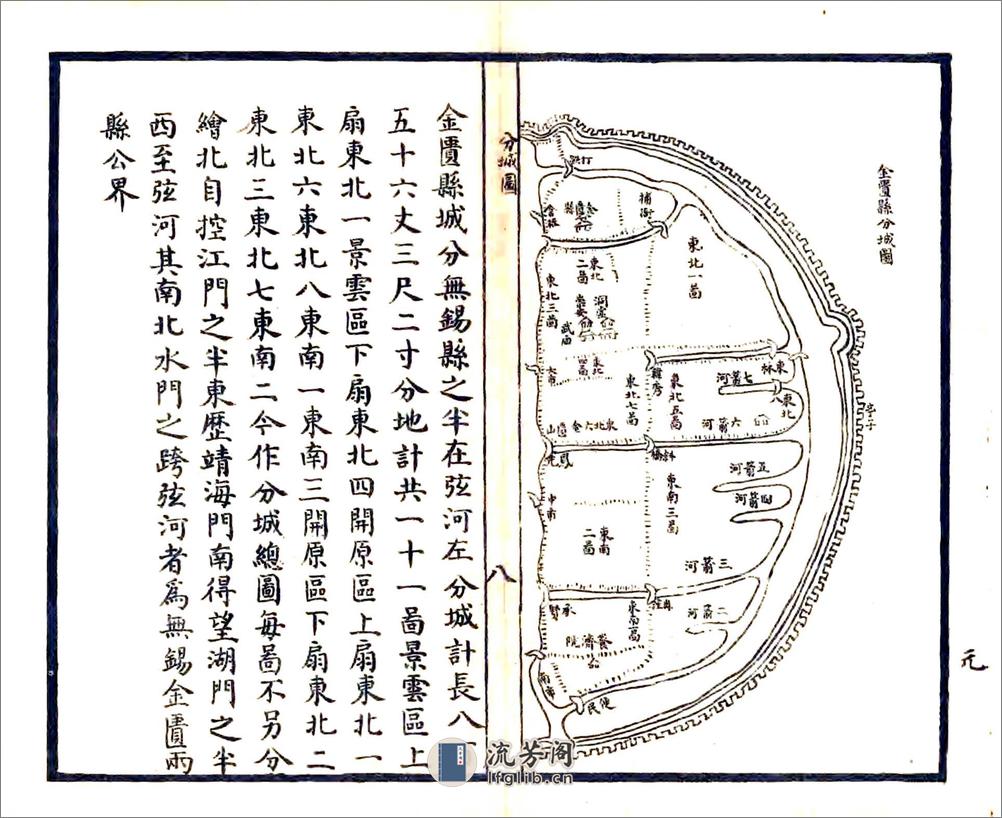 金匱縣分城圖
打鉄
補衖
金匱縣
倉
東北一啚
東北二啚
洞虛
東北三啚
武廟
東北四啚
大市
東林
七箭河
東北八
亭子
東北五啚
東北七啚
六箭河
東北六
金匱山
鳳光
斜橋
五箭河
四箭河
中南
東南三啚
東南二啚
三箭河
二箭河
東南一啚
養濟院
公
南市
便民
元
分城圖
八
金匱縣城分無錫縣之半在弦河左分城計長八
五十六丈三尺二寸分地計共一十一啚景雲區上
扇東北一景雲區下扇東北四開原區上扇東北一
東北六東北八東南一東南三開原區下扇東北二
東北三東北七東南二今作分城總圖每啚不另分
繪北自控江門之半東歷靖海門南得望湖門之半
西至弦河其南北水門之跨弦河者爲無錫金匱兩
縣公界
流芳阁
lfglib.cn